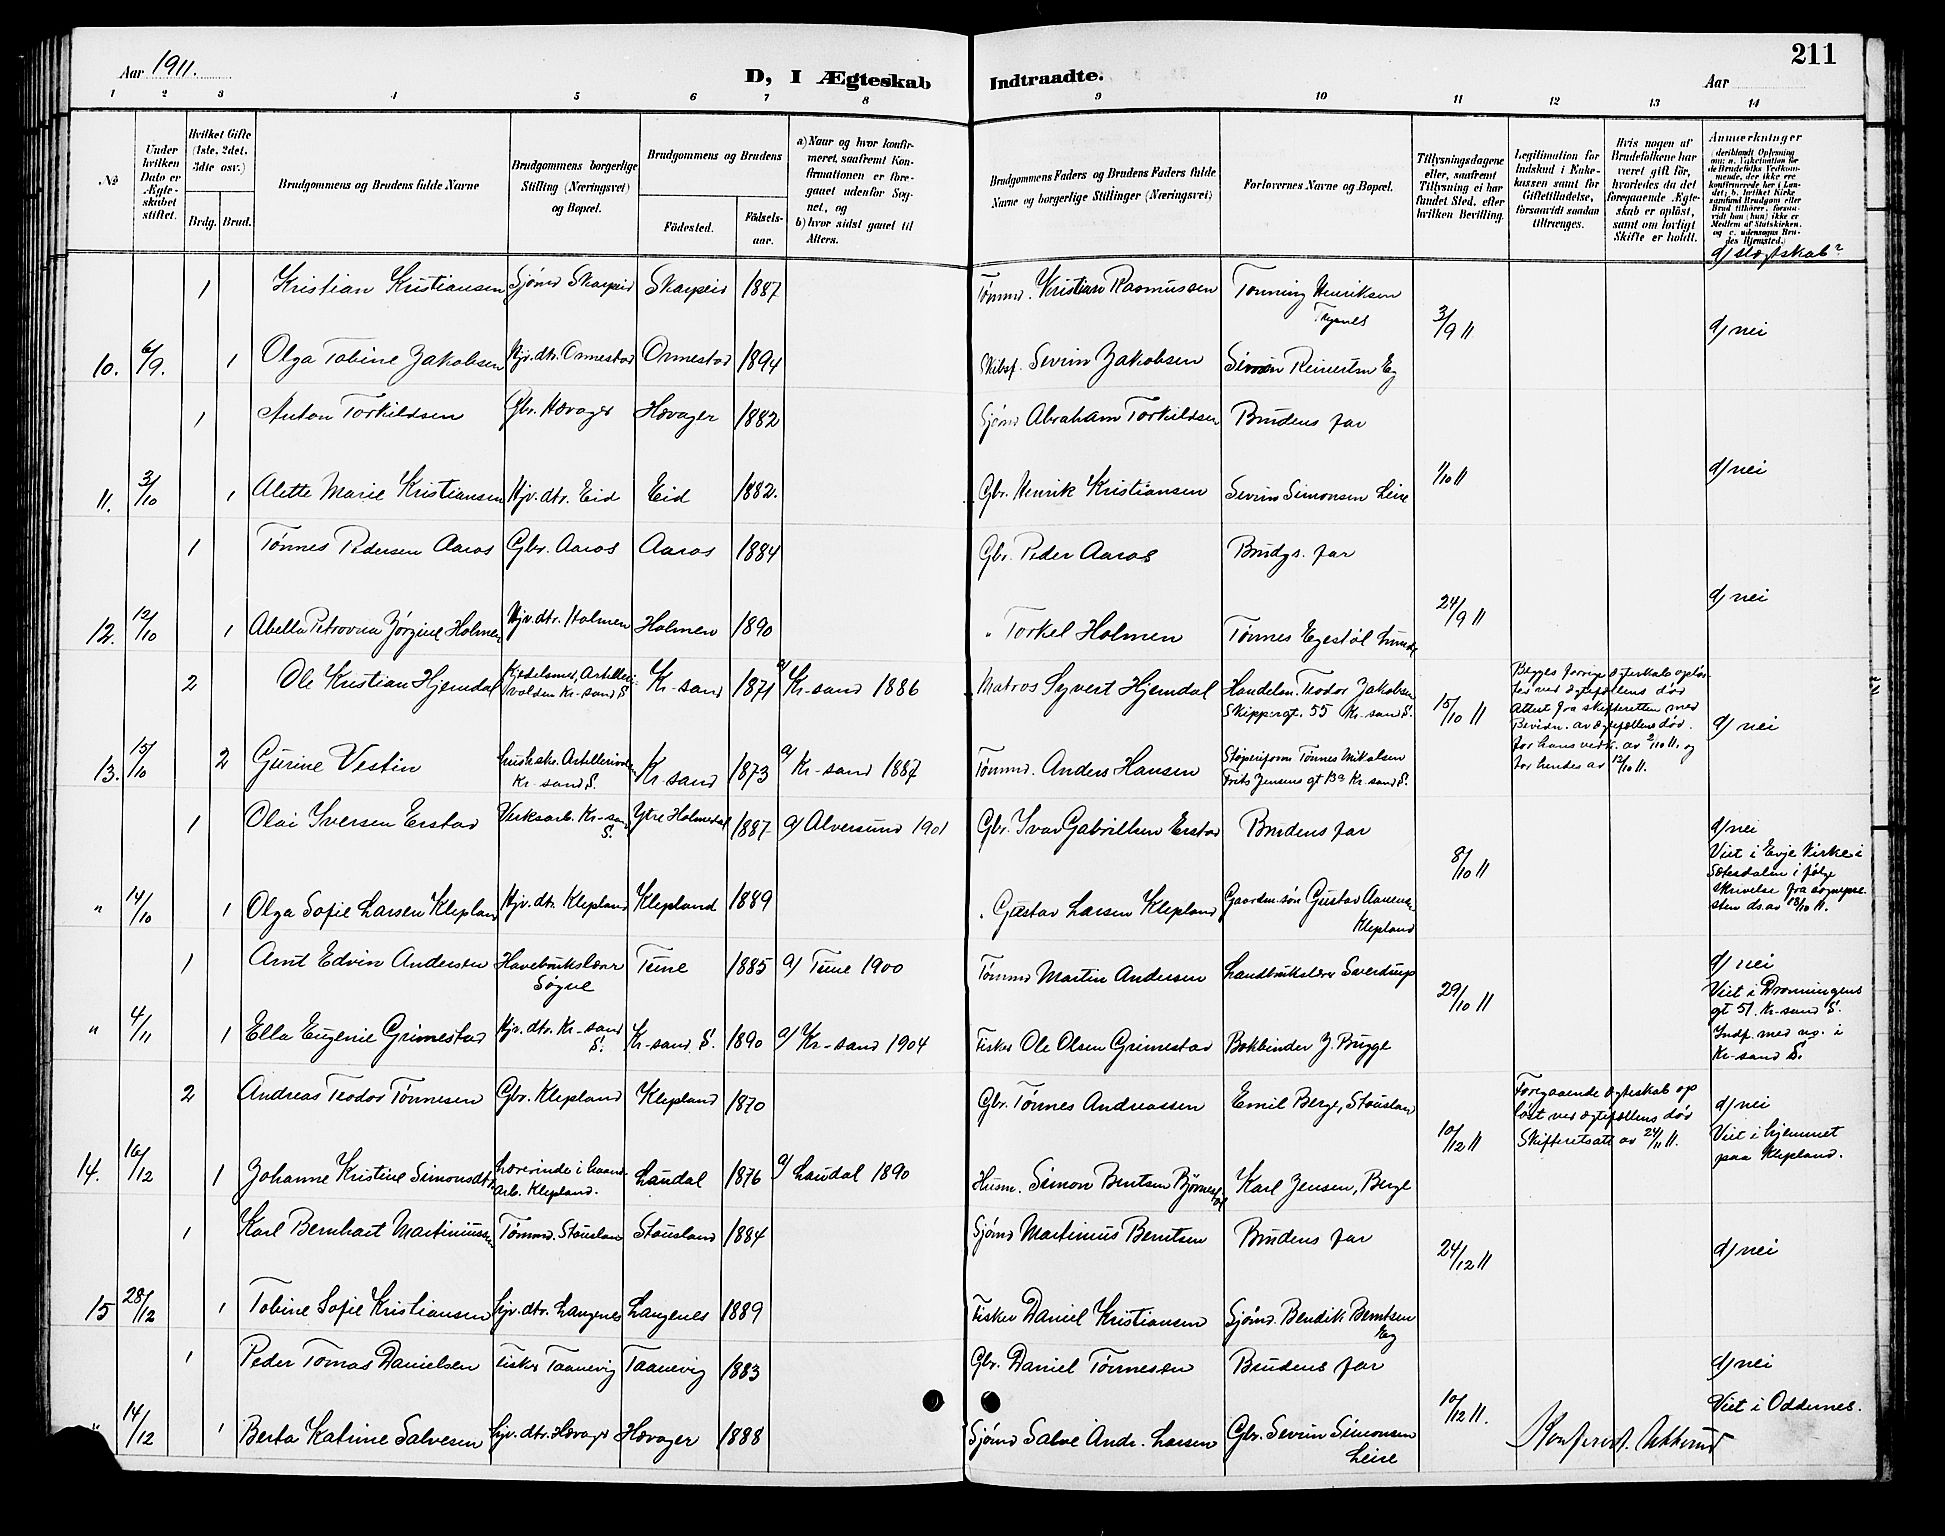 211
Aar 1911.
D, I Ægteskab Indtraadte.
Aar
1 2 3 4 5 6 7 8 9 10 11 12 13 14
№
Under hvilken Dato er Ægteskabet stiftet.
Hvilket Gifte (1ste, 2det, 3dte osv.)
Brdg. Brud.
Brudgommens og Brudens fulde Navne
Brudgommens borgerlige Stilling (Næringsvei) og Bopæl.
Brudgommens og Brudens
Födested. Födsels-aar.
a) Naar og hvor konfirmeret, saafremt Konfirmationen er foregaaet udenfor Sognet, og
b) hvor sidst gaaet til Alters.
Brudgommens Faders og Brudens Faders fulde Navne og borgerlige Stillinger (Næringsvei)
Forlovernes Navne og Bopæl.
Tillysningsdagene eller, saafremt Tillysning ei har fundet Sted, efter hvilken Bevilling.
Legitimation for Indskud i Enkekassen samt for Giftetilladelse, forsaavidt saadan tiltrænges.
Hvis nogen af Brudefolkene har været gift för, hvorledes da det foregaaende Ægteskab er oplöst, samt om lovligt Skifte er holdt.
Anmærkninger
d/ slegtskab?
1 Kristian Kristiansen Sjømd Skarpeid Skarpeid 1887 Tømmd. Kristian Rasmussen Tønning Henriksen
3/9 11 d/ nei
10. 6/9. 1 Olga Tobine Jakobsen Hjv. dtr. Ormestad Ormestad 1894 Skibsf. Severin Jakobsen Simon Reinertsen Eg
1 Anton Torkildsen Gbr. Høvager Høvager 1882 Sjømd Abraham Torkildsen Brudens far
11. 3/10 1 Alette Marie Kristiansen Hjv. dtr. Eid Eid 1882. Gbr. Henrik Kristiansen Severin Simonsen Leire 1/10 11 d/ nei
1 Tønnes Pedersen Aaros Gbr. Aaros Aaros 1884 Gbr. Peder Aaros Brudgs. far
12. 12/10 1 Abella Petrovna Jørgine Holmen Hjv. dtr. Holmen Holmen 1890 " Torkel Holmen Tønnes Egestøl Lunde 24/9 11 d/ nei
2 Ole Kristian Hjemdal Kjedelsmed, Artilleri-volden Kr-sand S Kr-sand 1871 a/ Kr-sand 1886 Matros Syvert Hjemdal Handelsm. Teodor Jakobsen
Skippergt. 55 Kr-sand S.
15/10 11
Begges forrige egteskab opløstes ved egtefellens død
Attest fra skifteretten med
Bevidn. av egtefellens død
for hans vedk. av 2/10 11. og
for hendes av 12/10 11.
d/ nei
13. 15/10 2 Gurine Vestin Hushold. Artillerivolden Kr-sand S. Kr-sand 1873 a/ Kr-sand 1887 Tømmd. Anders Hansen Støperiform Tønnes Mikalsen
Frits Jensens gt 13a Kr-sand S.
1 Olai Iversen Erstad Verksarb. Kr-sand S. Ytre Holmedal 1887 a/ Alversund 1901 Gbr. Ivar Gabrielsen Erstad Brudens far
8/10 11
d/ nei
Viet i Evje kirke i
Sætesdalen i følge
skrivelse fra sognepresten ds. av 18/10 11.
" 14/10 1 Olga Sofie Larsen Klepland Hjv. dtr. Klepland Klepland 1889 " Gustav Larsen Klepland Gaardm. søn Gustav Aanensen
Klepland
1 Arnt Edvin Andersen Havebrukslærer Søgne Tune 1885 a/ Tune 1900 Tømmd Martin Andersen Landbrukslærer Sverdrup
29/10 11
d/ nei
Viet i Dronningens
gt 51 Kr-sand S.
Indf. med no. i
Kr-sand S.
" 4/11 1 Ella Eugenie Grimestad Hjv. dtr. Kr-sand S. Kr-sand S. 1890 a/ Kr-sand 1904 Fisker Ole Olsen Grimestad Bokbinder J. Bugge
2 Andreas Teodor Tønnesen Gbr. Klepland Klepland 1870 Gbr. Tønnes Andreassen Emil Berge, Stausland
10/12 11
Foregaaende egteskab opløst ved egtefellens død
Skifteretsatt. av 24/11 11.
d/ nei
Viet i hjemmet
paa Klepland.
14. 16/12 1 Johanne Kristine Simonsdtr. Lærerinde i haandarb. Klepland. Laudal 1876 a/ Laudal 1890 Husm. Simon Berntsen Karl Jensen, Berge
1 Karl Bernhart Martiniussen Tømmd. Stausland Stausland 1884 Sjømd Martinius Berntsen Brudens far
24/12 11 d/ nei
15 28/12 1 Tobine Sofie Kristiansen Hjv. dtr. Langenes Langenes 1889 Fisker Daniel Kristiansen Sjømd. Bendik Berntsen
Eg
1 Peder Tomas Danielsen Fisker Taanevig Taanevig 1883 Gbr. Daniel Tønnesen Brudens far
10/12 11.
d/ nei
Viet i Oddernes.
" 14/12 1 Berta Katrine Salvesen Hjv. dtr. Høvager Høvager 1888 Sjømd Salve Andr. Larsen Gbr. Severin Simonsen
Leire
Konfereret.